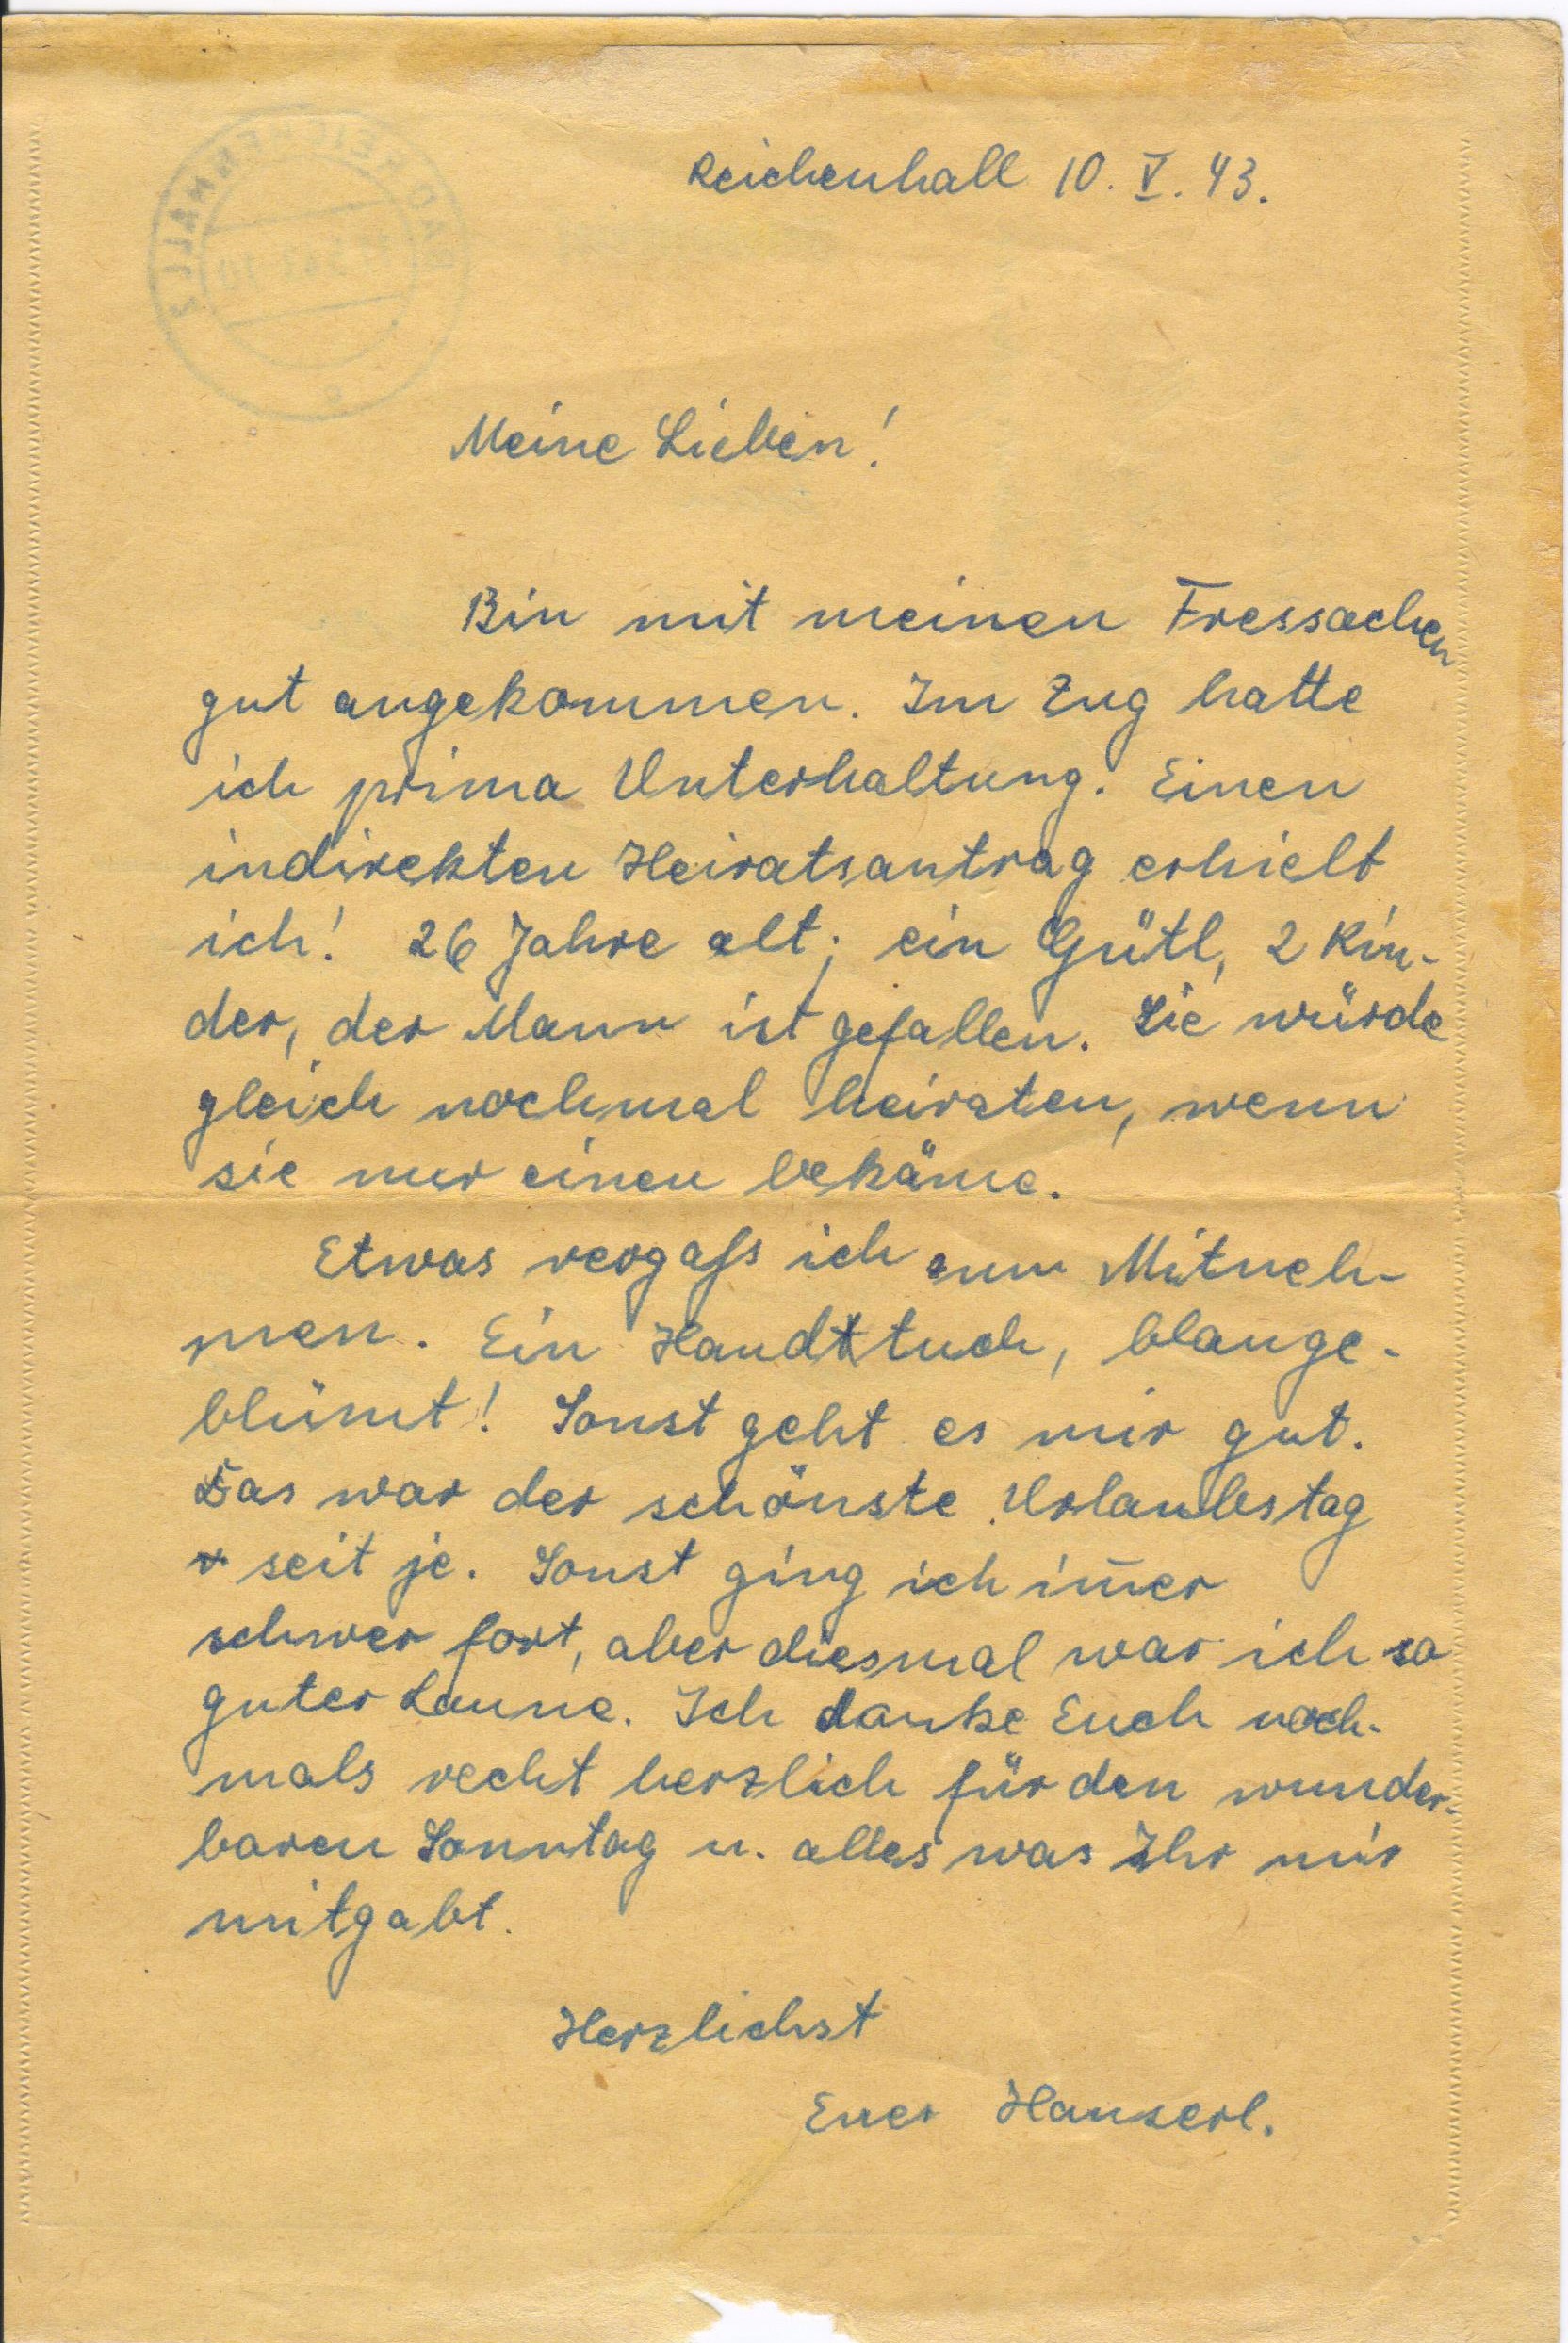 Reichenhall 10. V. 43.
Meine Lieben!
Bin mit meinen Fressachen
gut angekommen. Im Zug hatte
ich prima Unterhaltung. Einen
indirekten Heiratsantrag erhielt
ich! 26 Jahre alt; ein Gütl, 2 Kin-
der, der Mann ist gefallen. Sie würde
gleich nochmal heiraten, wenn
sie nur einen bekäme.
Etwas vergaß ich zum Mitneh-
men. Ein Handtuch, blauge-
blümt! Sonst geht es mir gut.
Das war der schönste Urlaubstag
seit je. Sonst ging ich im̄er
schwer fort, aber diesmal war ich so
guter Laune. Ich danke Euch noch-
mals recht herzlich für den wunder-
baren Sonntag u. alles was Ihr mir
mitgabt.
Herzlichst
Euer Hanserl.